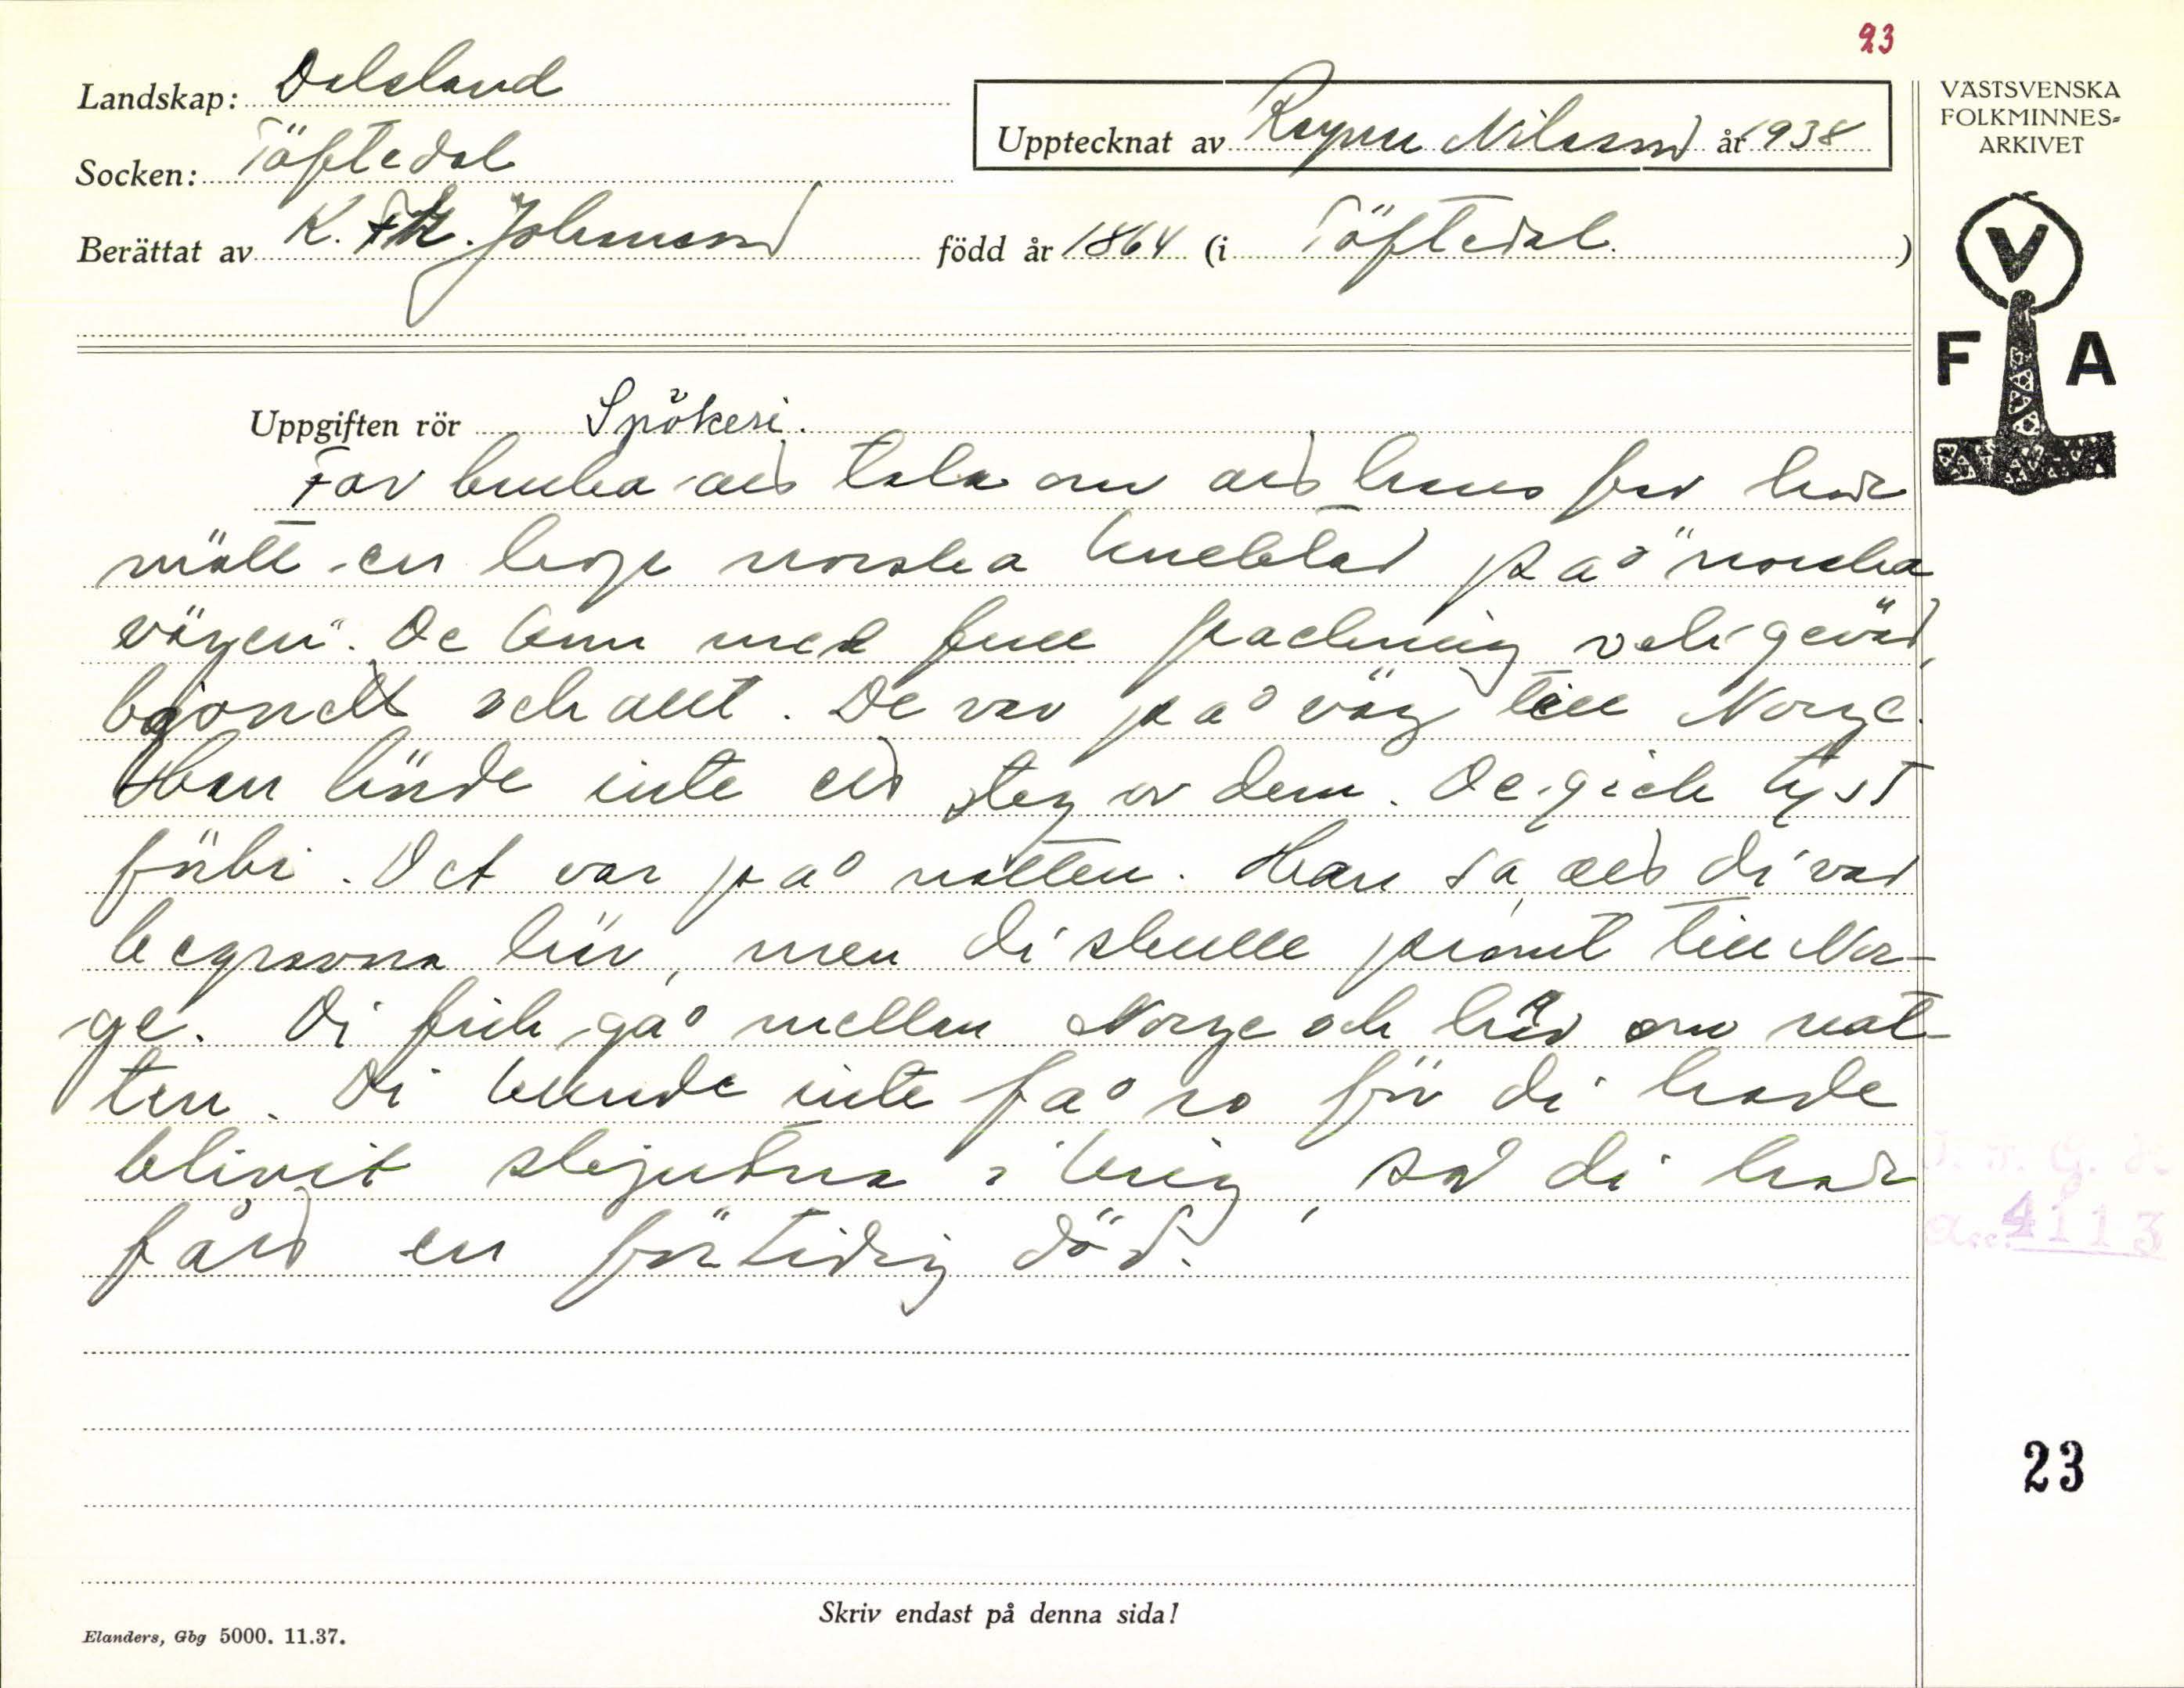 23
Landskap: Dalsland
Upptecknat av Ragnar Nilsson år 1938
VÄSTSVENSKA
FOLKMINNES-
ARKIVET
Socken: Töftedal
Berättat av K. Fr. Johansson född år 1864 (i Töftedal.)
V
F A
Uppgiften rör Spökeri.
Far bruka att tala om att hans far hade
mött en hop norska knektar på "norska
vägen". De kom med full packning och gevär,
bajonett och allt. De var på väg till Norge.
Han hörde inte ett steg av dem. De gick tyst
förbi. Det var på natten. Han sa att di var
begravna här, men di skulle prompt till Nor-
ge. Di fick gå mellan Norge och här om nat-
ten. Di kunde inte få ro för di hade
blivit skjutna i krig, så di hade
fått en förtidig död.
D. F. G. K
acc. 4113
23
Skriv endast på denna sida!
Elanders, Gbg 5000. 11.37.